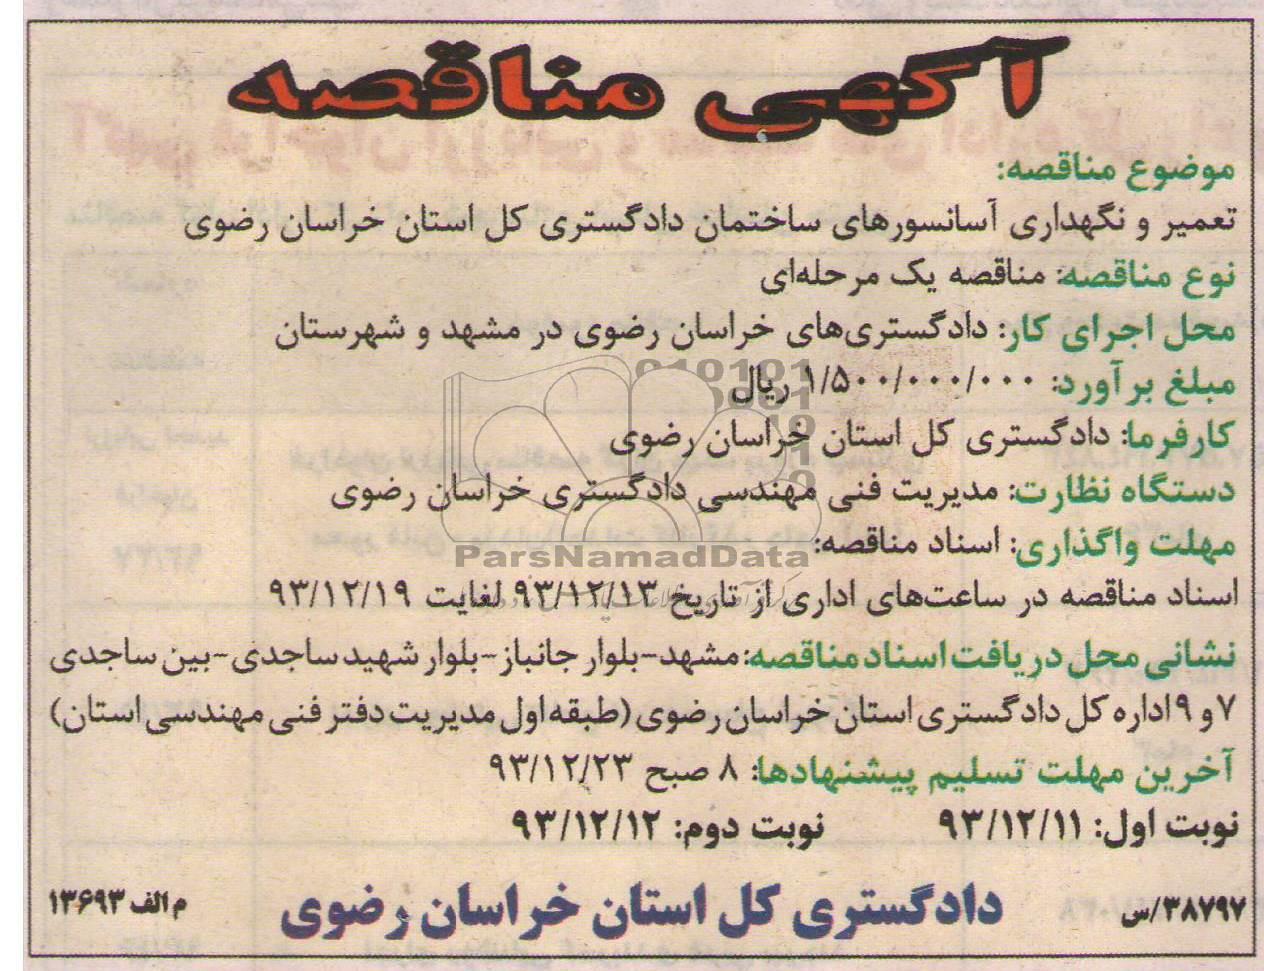 آگهی مناقصه
موضوع مناقصه:
تعمیر و نگهداری آسانسورهای ساختمان دادگستری کل استان خراسان رضوی
نوع مناقصه: مناقصه یک مرحله‌ای
محل اجرای کار: دادگستری‌های خراسان رضوی در مشهد و شهرستان
مبلغ برآورد: ۱/۵۰۰/۰۰۰/۰۰۰ ریال
کارفرما: دادگستری کل استان خراسان رضوی
دستگاه نظارت: مدیریت فنی مهندسی دادگستری خراسان رضوی
مهلت واگذاری: اسناد مناقصه:
ParsNamadData
اسناد مناقصه در ساعت‌های اداری از تاریخ ۹۳/۱۲/۱۳ لغایت ۹۳/۱۲/۱۹
نشانی محل دریافت اسناد مناقصه: مشهد-بلوار جانباز-بلوار شهید ساجدی-بین ساجدی
۷ و ۹ اداره کل دادگستری استان خراسان رضوی (طبقه اول مدیریت دفتر فنی مهندسی استان)
آخرین مهلت تسلیم پیشنهادها: ۸ صبح ۹۳/۱۲/۲۳
نوبت اول: ۹۳/۱۲/۱۱ نوبت دوم: ۹۳/۱۲/۱۲
۳۸۷۹۷/س دادگستری کل استان خراسان رضوی م الف ۱۳۶۹۳